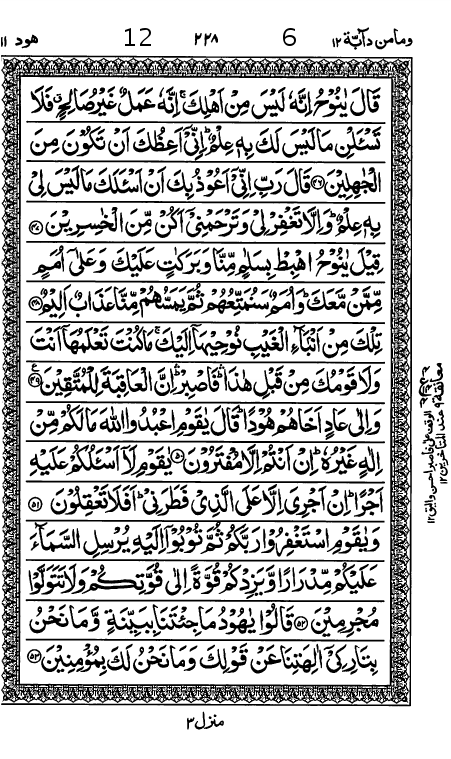 وما من دآبة ١٢ 6 ٢٢٨ 12 هود ١١
قَالَ يٰنُوْحُ اِنَّهٗ لَيْسَ مِنْ اَهْلِكَ ۚ اِنَّهٗ عَمَلٌ غَيْرُ صَالِحٍ ۖ فَلَا
تَسْـَٔلْنِ مَا لَيْسَ لَكَ بِهٖ عِلْمٌ ؕ اِنِّیْۤ اَعِظُكَ اَنْ تَكُوْنَ مِنَ
الْجٰهِلِيْنَ ﴿۴۶﴾ قَالَ رَبِّ اِنِّیْۤ اَعُوْذُ بِكَ اَنْ اَسْـَٔلَكَ مَا لَيْسَ لِیْ
بِهٖ عِلْمٌ ؕ وَاِلَّا تَغْفِرْ لِیْ وَتَرْحَمْنِیْۤ اَكُنْ مِّنَ الْخٰسِرِيْنَ ﴿۴۷﴾
قِيْلَ يٰنُوْحُ اهْبِطْ بِسَلٰمٍ مِّنَّا وَبَرَكٰتٍ عَلَيْكَ وَعَلٰۤى اُمَمٍ
مِّمَّنْ مَّعَكَ ؕ وَاُمَمٌ سَنُمَتِّعُهُمْ ثُمَّ يَمَسُّهُمْ مِّنَّا عَذَابٌ اَلِيْمٌ ﴿۴۸﴾
تِلْكَ مِنْ اَنْۢبَآءِ الْغَيْبِ نُوْحِيْهَاۤ اِلَيْكَ ۚ مَا كُنْتَ تَعْلَمُهَاۤ اَنْتَ
وَلَا قَوْمُكَ مِنْ قَبْلِ هٰذَا ۛؕ فَاصْبِرْ ۛؕ اِنَّ الْعَاقِبَةَ لِلْمُتَّقِيْنَ ﴿۴۹﴾ ع
وَاِلٰى عَادٍ اَخَاهُمْ هُوْدًا ؕ قَالَ يٰقَوْمِ اعْبُدُوا اللّٰهَ مَا لَكُمْ مِّنْ
اِلٰهٍ غَيْرُهٗ ؕ اِنْ اَنْتُمْ اِلَّا مُفْتَرُوْنَ ﴿۵۰﴾ يٰقَوْمِ لَاۤ اَسْـَٔلُكُمْ عَلَيْهِ
اَجْرًا ؕ اِنْ اَجْرِیَ اِلَّا عَلَى الَّذِیْ فَطَرَنِیْ ؕ اَفَلَا تَعْقِلُوْنَ ﴿۵۱﴾
وَيٰقَوْمِ اسْتَغْفِرُوْا رَبَّكُمْ ثُمَّ تُوْبُوْۤا اِلَيْهِ يُرْسِلِ السَّمَآءَ
عَلَيْكُمْ مِّدْرَارًا وَّيَزِدْكُمْ قُوَّةً اِلٰى قُوَّتِكُمْ وَلَا تَتَوَلَّوْا
مُجْرِمِيْنَ ﴿۵۲﴾ قَالُوْا يٰهُوْدُ مَا جِئْتَنَا بِبَيِّنَةٍ وَّمَا نَحْنُ
بِتَارِكِیْۤ اٰلِهَتِنَا عَنْ قَوْلِكَ وَمَا نَحْنُ لَكَ بِمُؤْمِنِيْنَ ﴿۵۳﴾
معانقة ٩ عند المتأخرين ١٢
منزل ٣